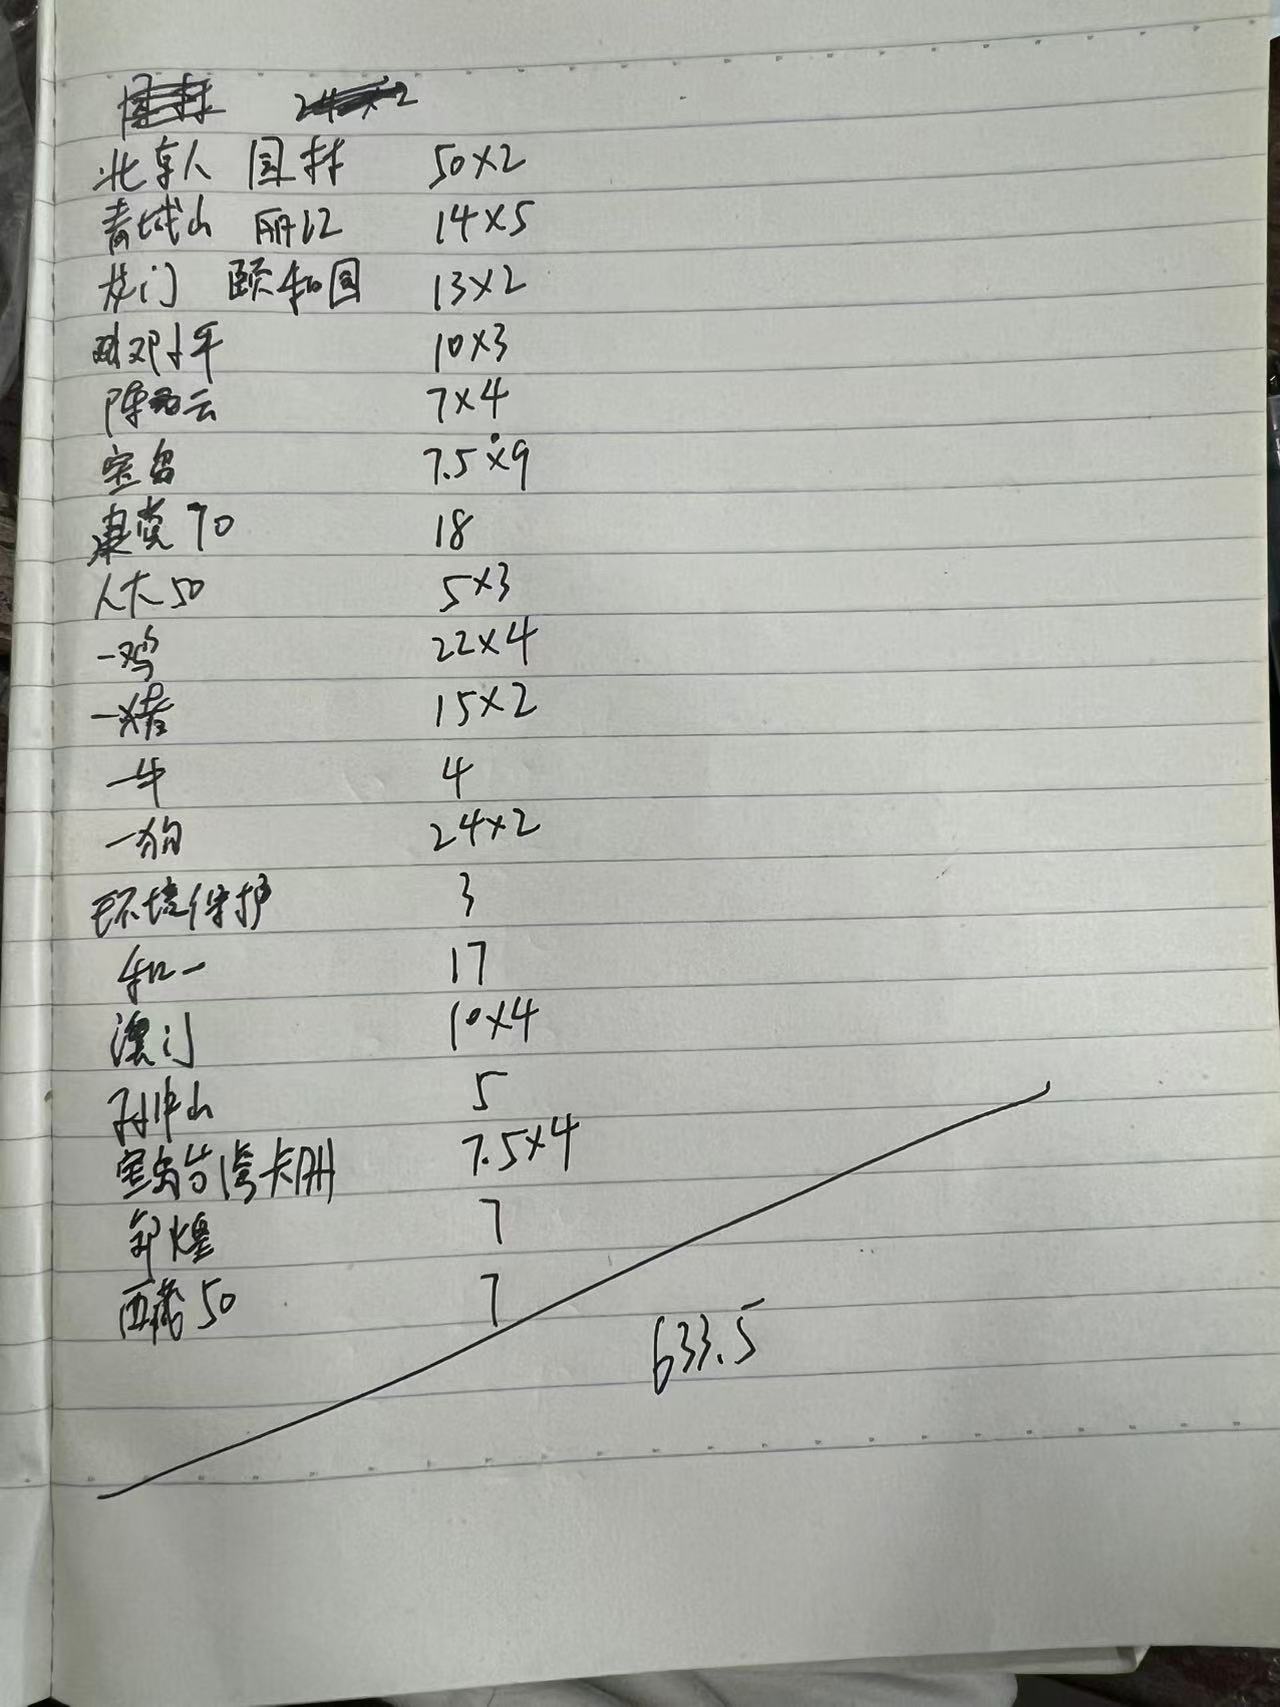 北京人 园林 50×2
青城山 丽江 14×5
龙门 颐和园 13×2
邓小平 10×3
陈云 7×4
宝岛 7.5×9
建党90 18
人大50 5×3
一鸡 22×4
一猪 15×2
一牛 4
一狗 24×2
环境保护 3
和一 17
澳门 10×4
孙中山 5
宝岛台湾卡册 7.5×4
7
西藏50 7
633.5